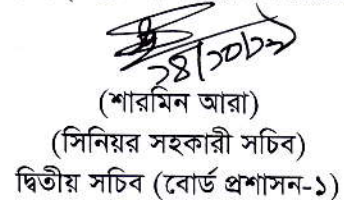 (শারমিন আরা)
(সিনিয়র সহকারী সচিব)
দ্বিতীয় সচিব (বোর্ড প্রশাসন-১)